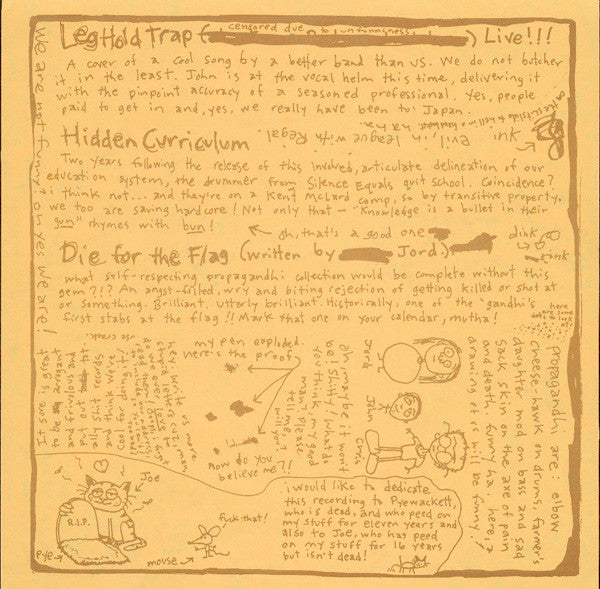 LegHold Trap (censored due to unfunnsness) Live!!!
A cover of a cool song by a better band than us. We do not butcher
it in the least. John is at the vocal helm this time, delivering it
with the pinpoint accuracy of a seasoned professional. Yes, people
paid to get in and, yes, we really have been to Japan.
evil in league with Regal
Hidden Curriculum
Two years following the release of this involved, articulate delineation of our
education system, the drummer from Silence Equals quit school. Coincidence?
i think not... and they're on a Kent McLard comp, so by transitive property,
we too are saving hardcore! Not only that - "Knowledge is a bullet in their
gun" rhymes with bun!
oh, that's a good one
dink
Die for the Flag (written by Jord)
what self-respecting propagandhi collection would be complete without this
gem?!? An angst-filled, wry and biting rejection of getting killed or shot at
or something. Brilliant. Utterly brilliant. Historically, one of the 'gandhi's
first stabs at the flag!! Mark that one on your calendar, mutha!
here are some
we are not funny. oh yes we are!
my pen exploded.
here's the proof
now do you
believe me?!!
ah maybe it won't
be! Shit! What do
you think, my good
man? Please
tell me,
will you?
Jord
John
Chris
propagandhi are: elbow
cheese-hawk on drums, farmer's
daughter mod on bass and sad
sack skin on the axe of pain
and death. funny ha? here, a
drawing of us will be funny!
hey. write us more
stupid letters cuz, man
do we ever love to
Joe
R.I.P.
pye
mouse
fuck that!
i would like to dedicate
this recording to Pyewackett,
who is dead, and who peed on
my stuff for eleven years and
also to Joe, who has peed
on my stuff for 16 years
but isn't dead!